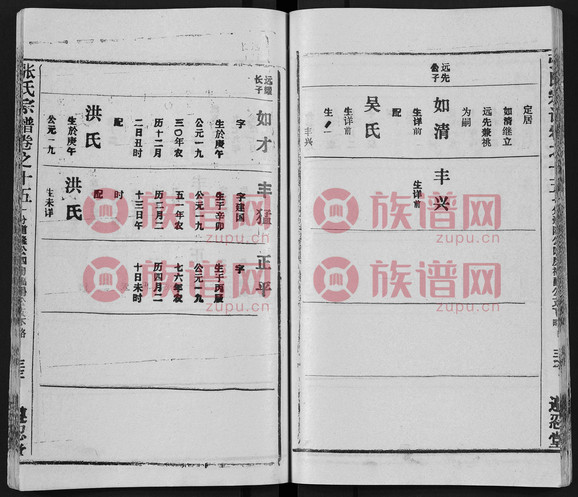 定居
如清继立
远先兼祧
为嗣
远先
公子
如清
生详前
配
吴氏
生详前
生一
丰兴
丰兴
生详前
远曜
长子
如才
字
生於庚午
公元一九
三〇年农
历十二月
二日丑时
配
洪氏
生於庚午
公元一九
丰猛
字建国
生于辛卯
公元一九
五一年农
历二月二
十三日午
时
配
洪氏
生未详
正平
字
生于丙辰
公元一九
七六年农
历四月二
十日未时
张氏宗谱卷之十五
族谱网
zupu.cn
族谱网
zupu.cn
族谱网
zupu.cn
族谱网
zupu.cn